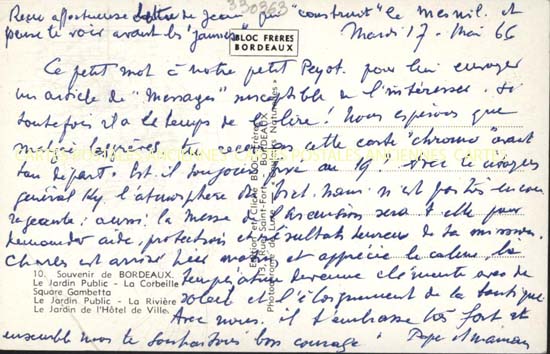 Reçu affectueuse lettre de Jean, qui "construit" le mesnil. et
pense te voir avant les "
330363
BLOC FRERES
BORDEAUX
Mardi 17 - Mai 66
Ce petit mot à notre petit Peyot. pour lui envoyer
un article de "Messages" susceptible de l'intéresser. Si
toutefois il a le temps de le lire! Nous espérons que
malgré les grèves, tu recevras cette carte "chromo" avant
ton départ. Est-il toujours fixé au 19? Avec le
général Ky, l'atmosphère de n'est pas très encou
rageante; aussi, la messe de l'Ascension sera t-elle pour
demander aide, protection et résultat heureux de ta mission.
Charles est arrivé hier et apprécie le calme, la
température devenue clémente avec le
soleil et l'éloignement de la boutique
Avec nous, il t'embrasse très fort et
ensemble nous te souhaitons bon courage! Papa et maman
CARTES POSTALES ANCIENNES
10. Souvenir de BORDEAUX.
Le Jardin Public - La Corbeille
Square Gambetta
Le Jardin Public - La Rivière
Le Jardin de l'Hôtel de Ville
Edition et Cliché BLOC Frères
13, Rue Saint-Fort - BORDEAUX
Photochrome de Luxe « Couleurs Naturelles »